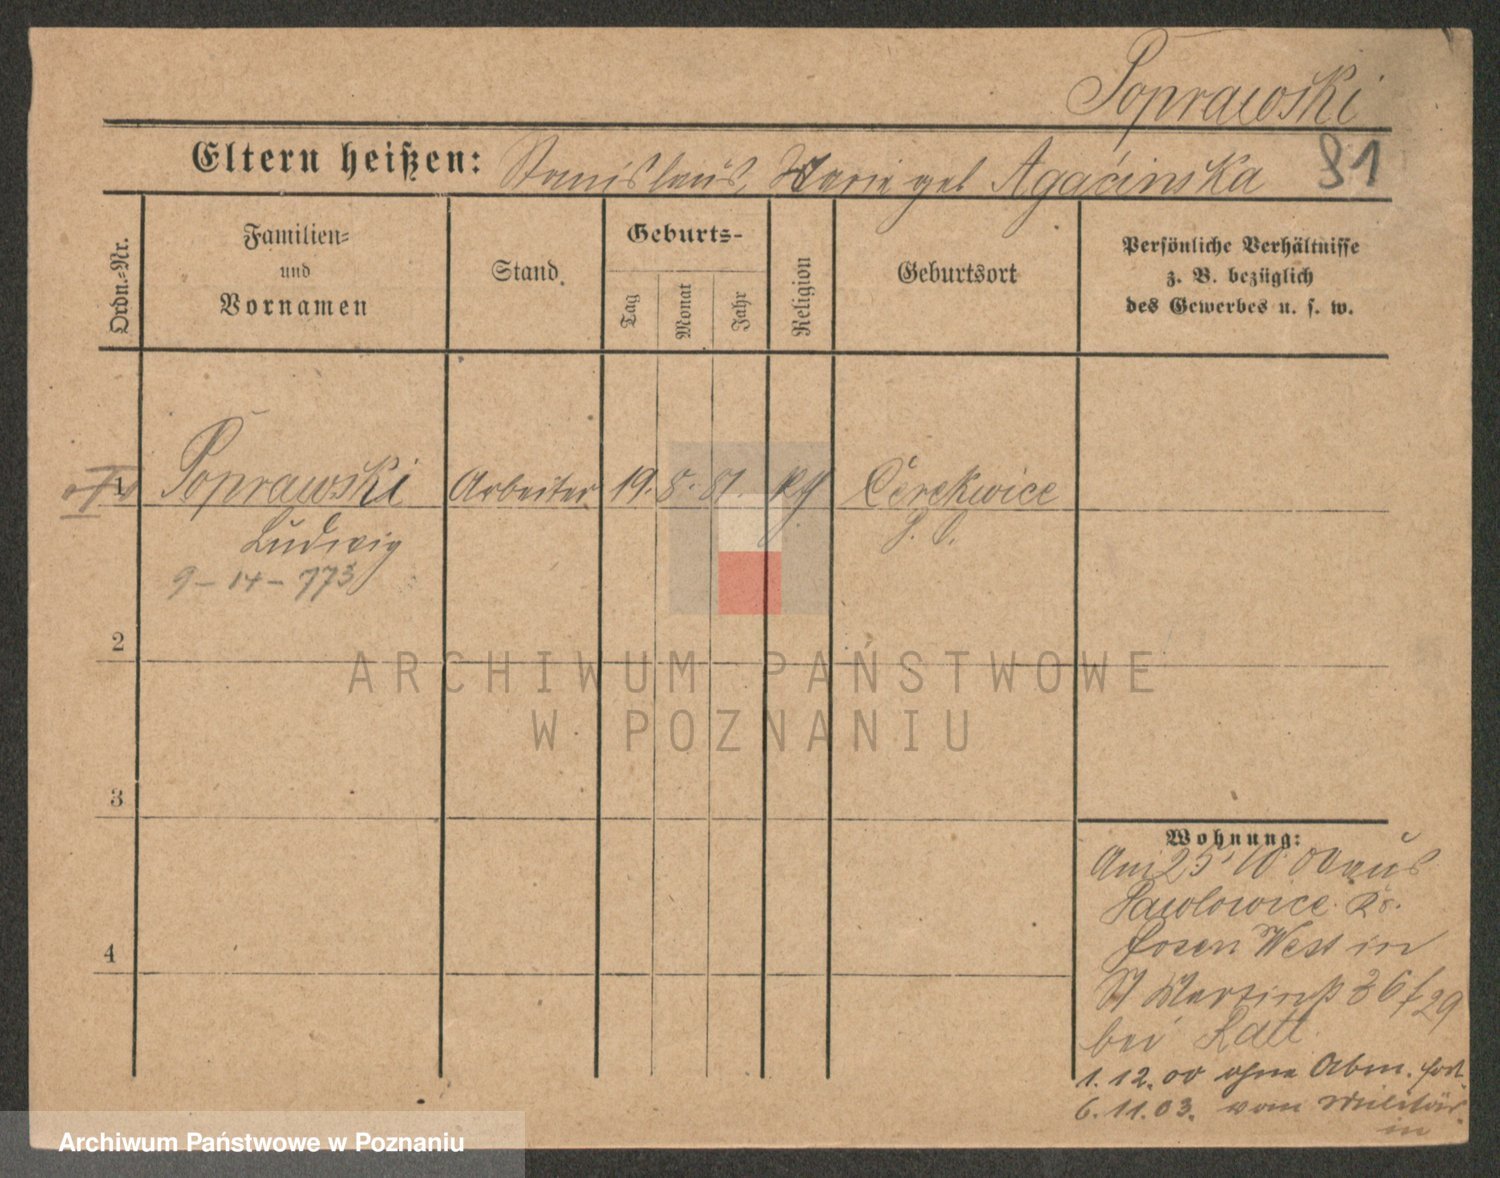 Poprawski
Eltern heißen: Stanislaus, Marie geb Agacinska 81
Ordn.-Nr.
Familien-
und
Vornamen
Stand
Geburts-
Tag
Monat
Jahr
Religion
Geburtsort
Persönliche Verhältnisse
z. B. bezüglich
des Gewerbes u. s. w.
1 Poprawski Arbeiter 19. 8. 81. Cerekwice
Ludwig
9-14-773
2
3
4
Wohnung:
Am 25/10 00 aus
Pawlowice Kr.
Posen West in
St Martinstr 36/29
bei
1.12.00 ohne Abm. fort.
6.11.03. vom Militär
in
ARCHIWUM PAŃSTWOWE
W POZNANIU
Archiwum Państwowe w Poznaniu